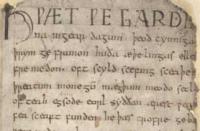 HǷÆT ǷE GARDE
na ingear dagum þeod cyninga
þrym ge frunon huða æþelingas elle
fre medon. oft scyld scefing sceaþe
þreatum monegū mægþum meodo setl
of teah egsode eorl syððan ærest ƿear
fea sceaft funden he þæs frofre geba